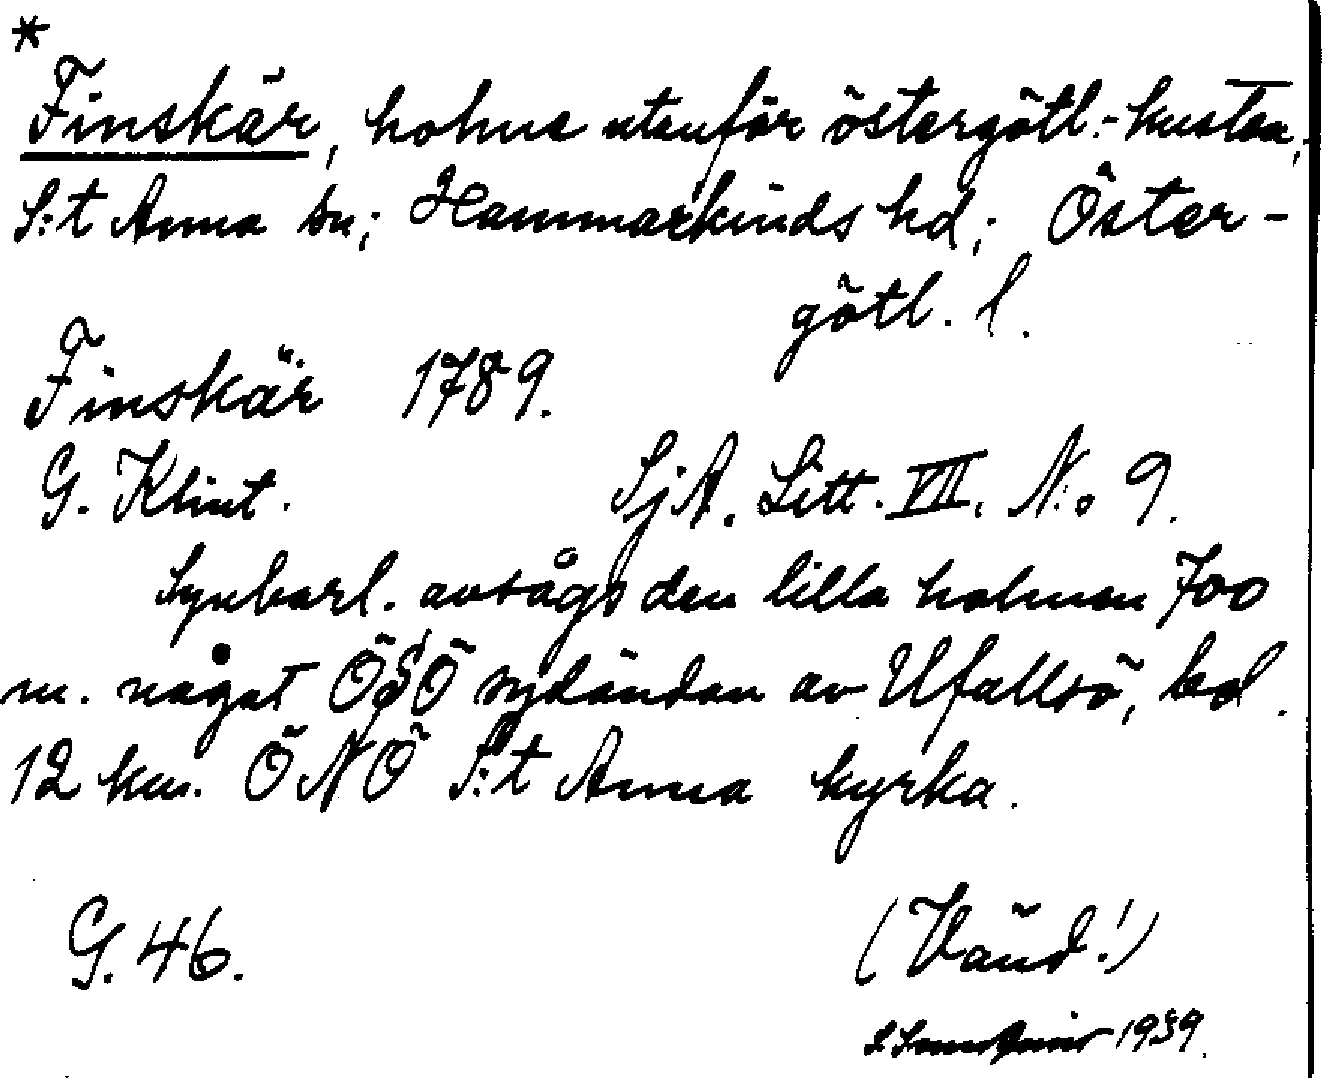 *
Finskär, holme utanför östergötl.-kusten,
S:t Anna sn; Hammarkinds hd; Öster-
götl. l.
Finskär 1789.
G. Klint. SjA. Litt. VII. N:o 9.
Synbarl. avsågs den lilla holmen 700
m. något ÖSÖ sydändan av Ufallsö, bel.
12 km. ÖNÖ S:t Anna kyrka.
G. 46. (Vänd!)
1939.